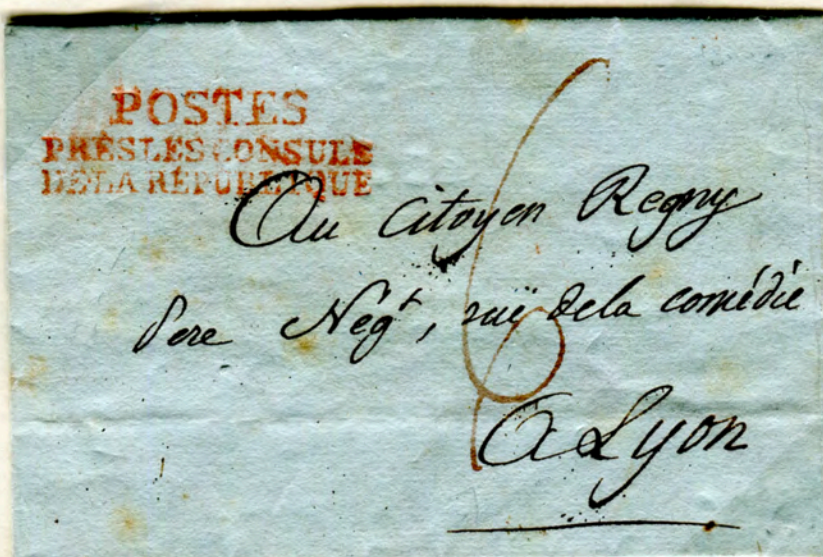 POSTES
PRÈS LES CONSULS
DE LA RÉPUBLIQUE
6
Au Citoyen Regny
Pere Negt, ruë dela comédie
A Lyon